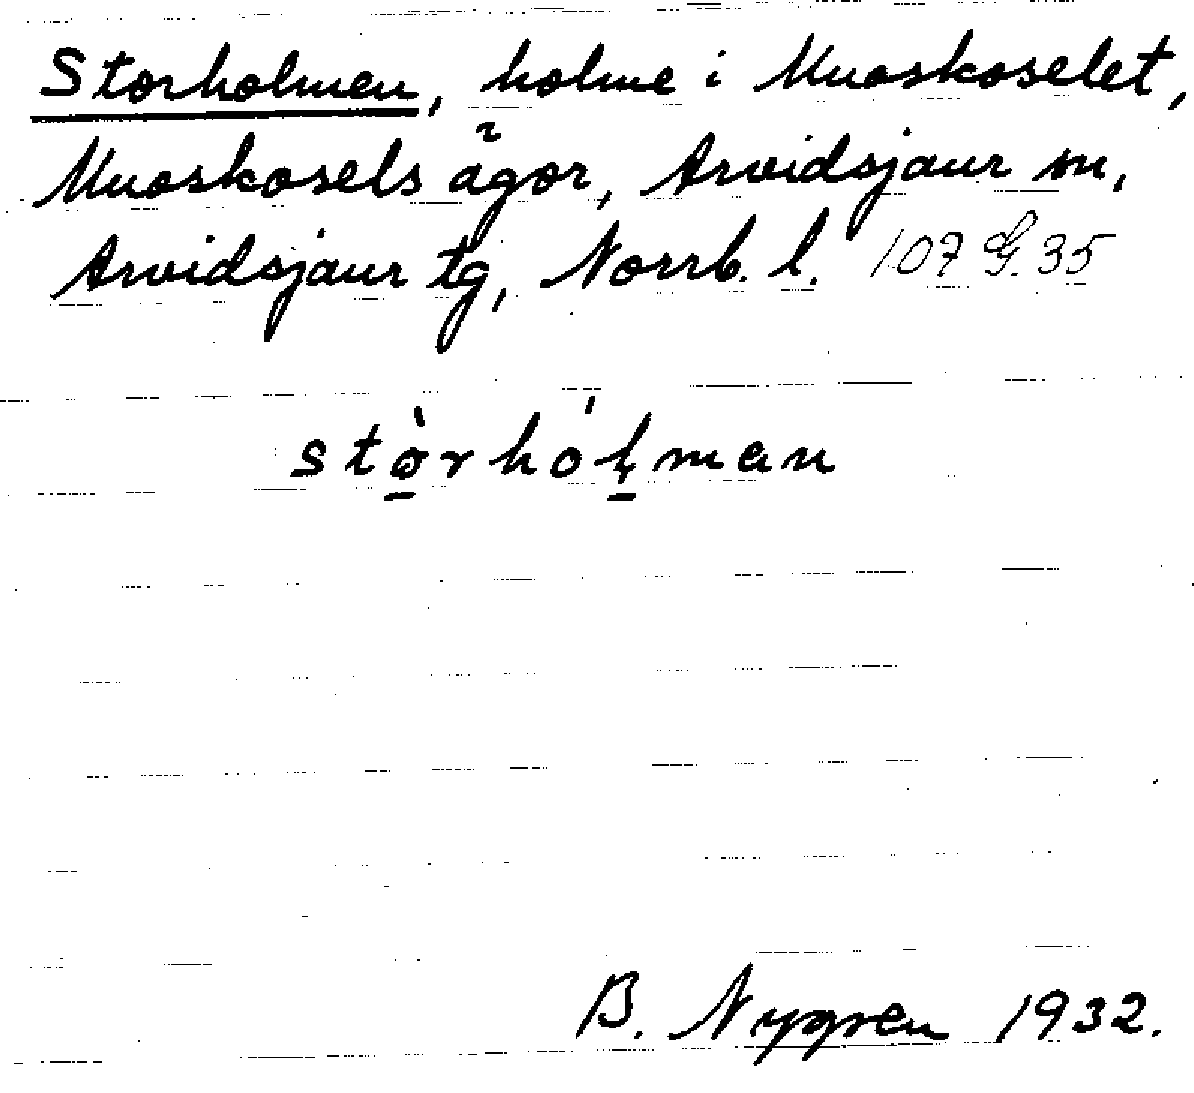 Storholmen, holme i Muoskoselet,
Muoskosels ägor, Arvidsjaur sn,
Arvidsjaur tg, Norrb. l. 107 G. 35
stòrhólman
B. Nygren 1932.